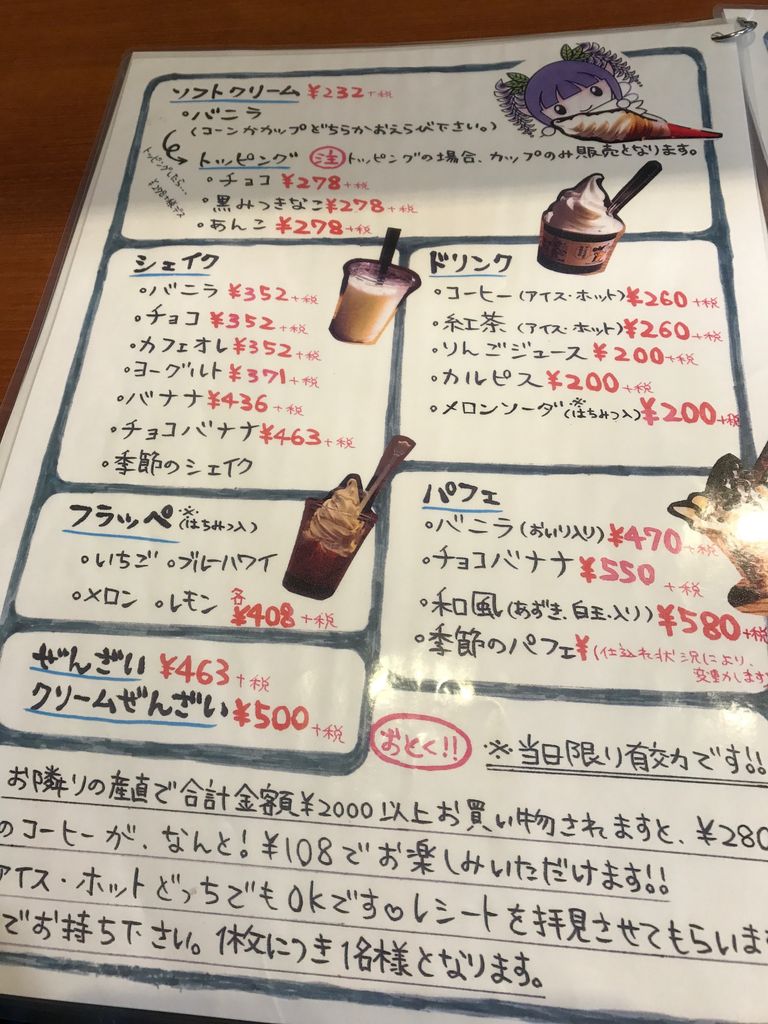 ソフトクリーム ¥232+税
・バニラ
(コーンかカップどちらかおえらび下さい。)
トッピングしたら…
¥278+税デス
トッピング 注 トッピングの場合、カップのみ販売となります。
・チョコ ¥278+税
・黒みつきなこ¥278+税
・あんこ ¥278+税
シェイク
・バニラ ¥352+税
・チョコ ¥352+税
・カフェオレ¥352+税
・ヨーグルト ¥371+税
・バナナ ¥436+税
・チョコバナナ¥463+税
・季節のシェイク
ドリンク
・コーヒー(アイス・ホット)¥260+税
・紅茶(アイス・ホット)¥260+税
・りんごジュース ¥200+税
・カルピス ¥200+税
・メロンソーダ(※はちみつ入)¥200+税
フラッペ(※はちみつ入)
・いちご ・ブルーハワイ
・メロン ・レモン 各¥408+税
パフェ
・バニラ(おいり入り)¥470+税
・チョコバナナ ¥550+税
・和風(あずき、白玉、入り)¥580+税
・季節のパフェ¥(仕込れ状況により、
変動します
ぜんざい ¥463+税
クリームぜんざい¥500+税
おとく!! ※当日限り有効です!!
お隣りの産直で合計金額¥2000以上お買い物されますと、¥280
のコーヒーが、なんと!¥108でお楽しみいただけます!!
アイス・ホットどっちでもOKです♡レシートを拝見させてもらいます
でお持ち下さい。1枚につき1名様となります。